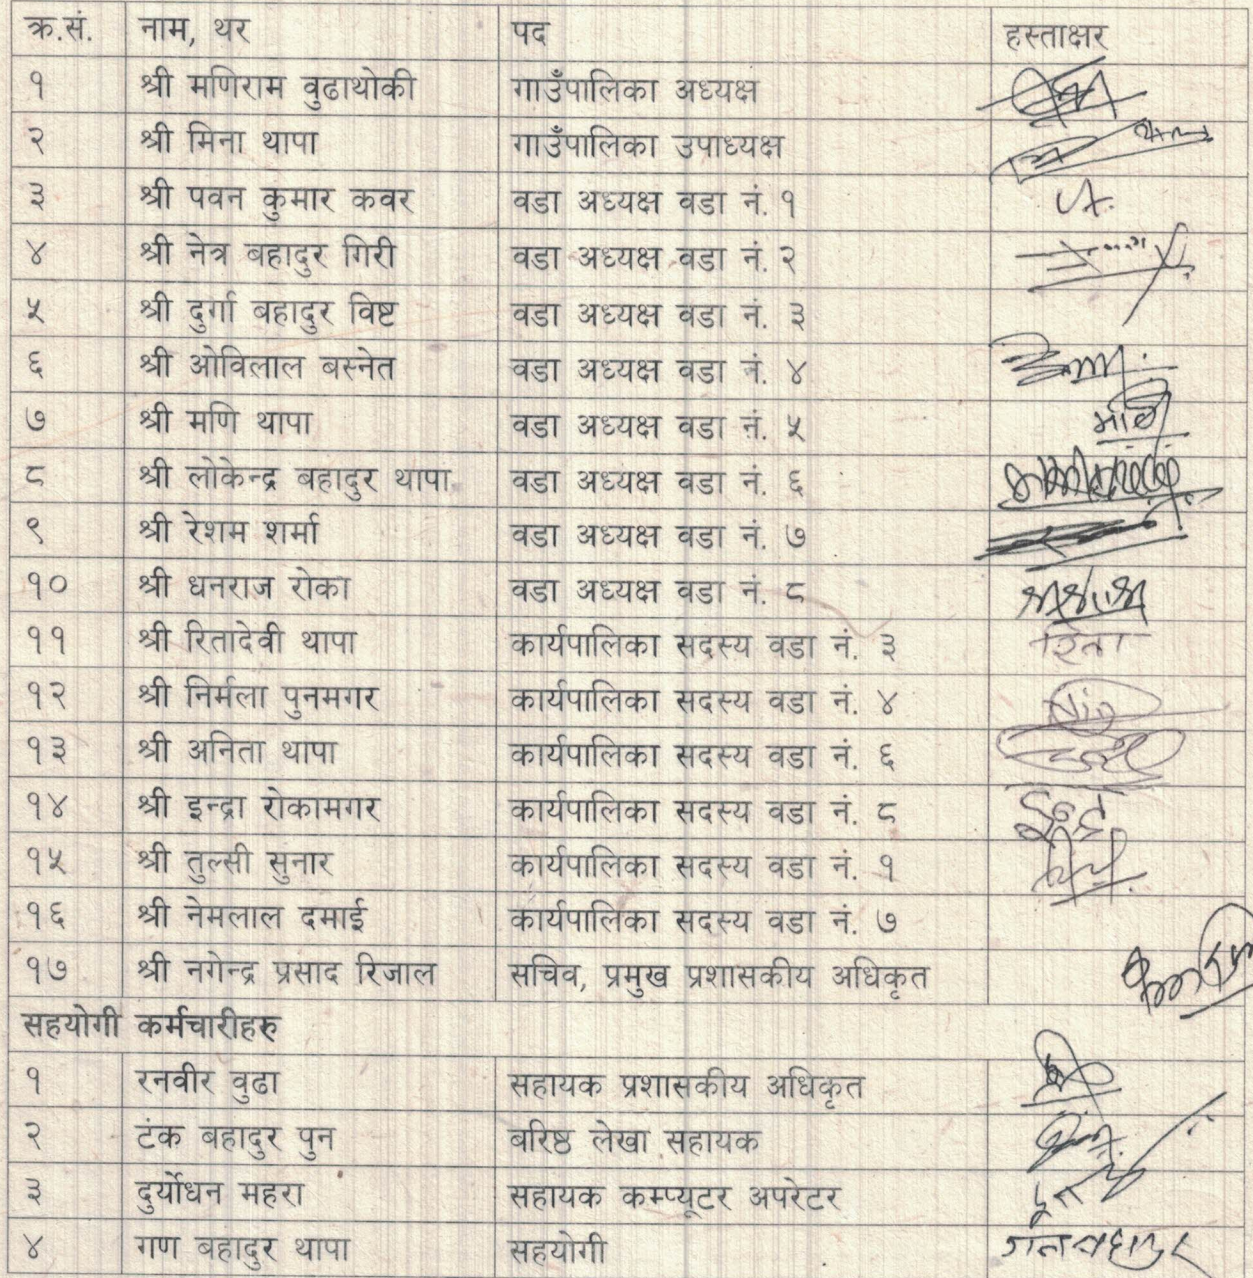 क्र.सं. नाम, थर पद हस्ताक्षर
१ श्री मणिराम वुढाथोकी गाउँपालिका अध्यक्ष
२ श्री मिना थापा गाउँपालिका उपाध्यक्ष
३ श्री पवन कुमार कवर वडा अध्यक्ष वडा नं. १
४ श्री नेत्र बहादुर गिरी वडा अध्यक्ष वडा नं. २
५ श्री दुर्गा बहादुर विष्ट वडा अध्यक्ष वडा नं. ३
६ श्री ओविलाल बस्नेत वडा अध्यक्ष वडा नं. ४
७ श्री मणि थापा वडा अध्यक्ष वडा नं. ५
८ श्री लोकेन्द्र बहादुर थापा वडा अध्यक्ष वडा नं. ६
९ श्री रेशम शर्मा वडा अध्यक्ष वडा नं. ७
१० श्री धनराज रोका वडा अध्यक्ष वडा नं. ८
११ श्री रितादेवी थापा कार्यपालिका सदस्य वडा नं. ३ रिता
१२ श्री निर्मला पुनमगर कार्यपालिका सदस्य वडा नं. ४
१३ श्री अनिता थापा कार्यपालिका सदस्य वडा नं. ६
१४ श्री इन्द्रा रोकामगर कार्यपालिका सदस्य वडा नं. ८ इन्द्र
१५ श्री तुल्सी सुनार कार्यपालिका सदस्य वडा नं. १
१६ श्री नेमलाल दमाई कार्यपालिका सदस्य वडा नं. ७
१७ श्री नगेन्द्र प्रसाद रिजाल सचिव, प्रमुख प्रशासकीय अधिकृत
सहयोगी कर्मचारीहरु
१ रनवीर वुढा सहायक प्रशासकीय अधिकृत
२ टंक बहादुर पुन बरिष्ठ लेखा सहायक
३ दुर्योधन महरा सहायक कम्प्यूटर अपरेटर
४ गण बहादुर थापा सहयोगी